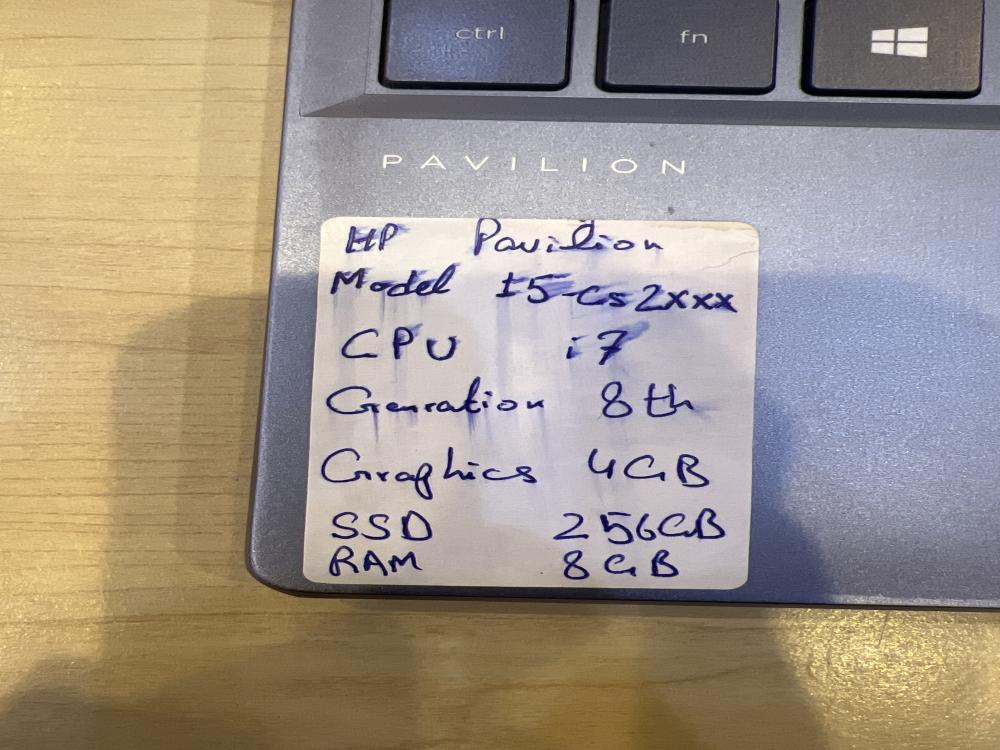 ctrl fn
PAVILION
HP Pavilion
Model 15-cs2xxx
CPU i7
Genration 8th
Graphics 4GB
SSD 256GB
RAM 8GB